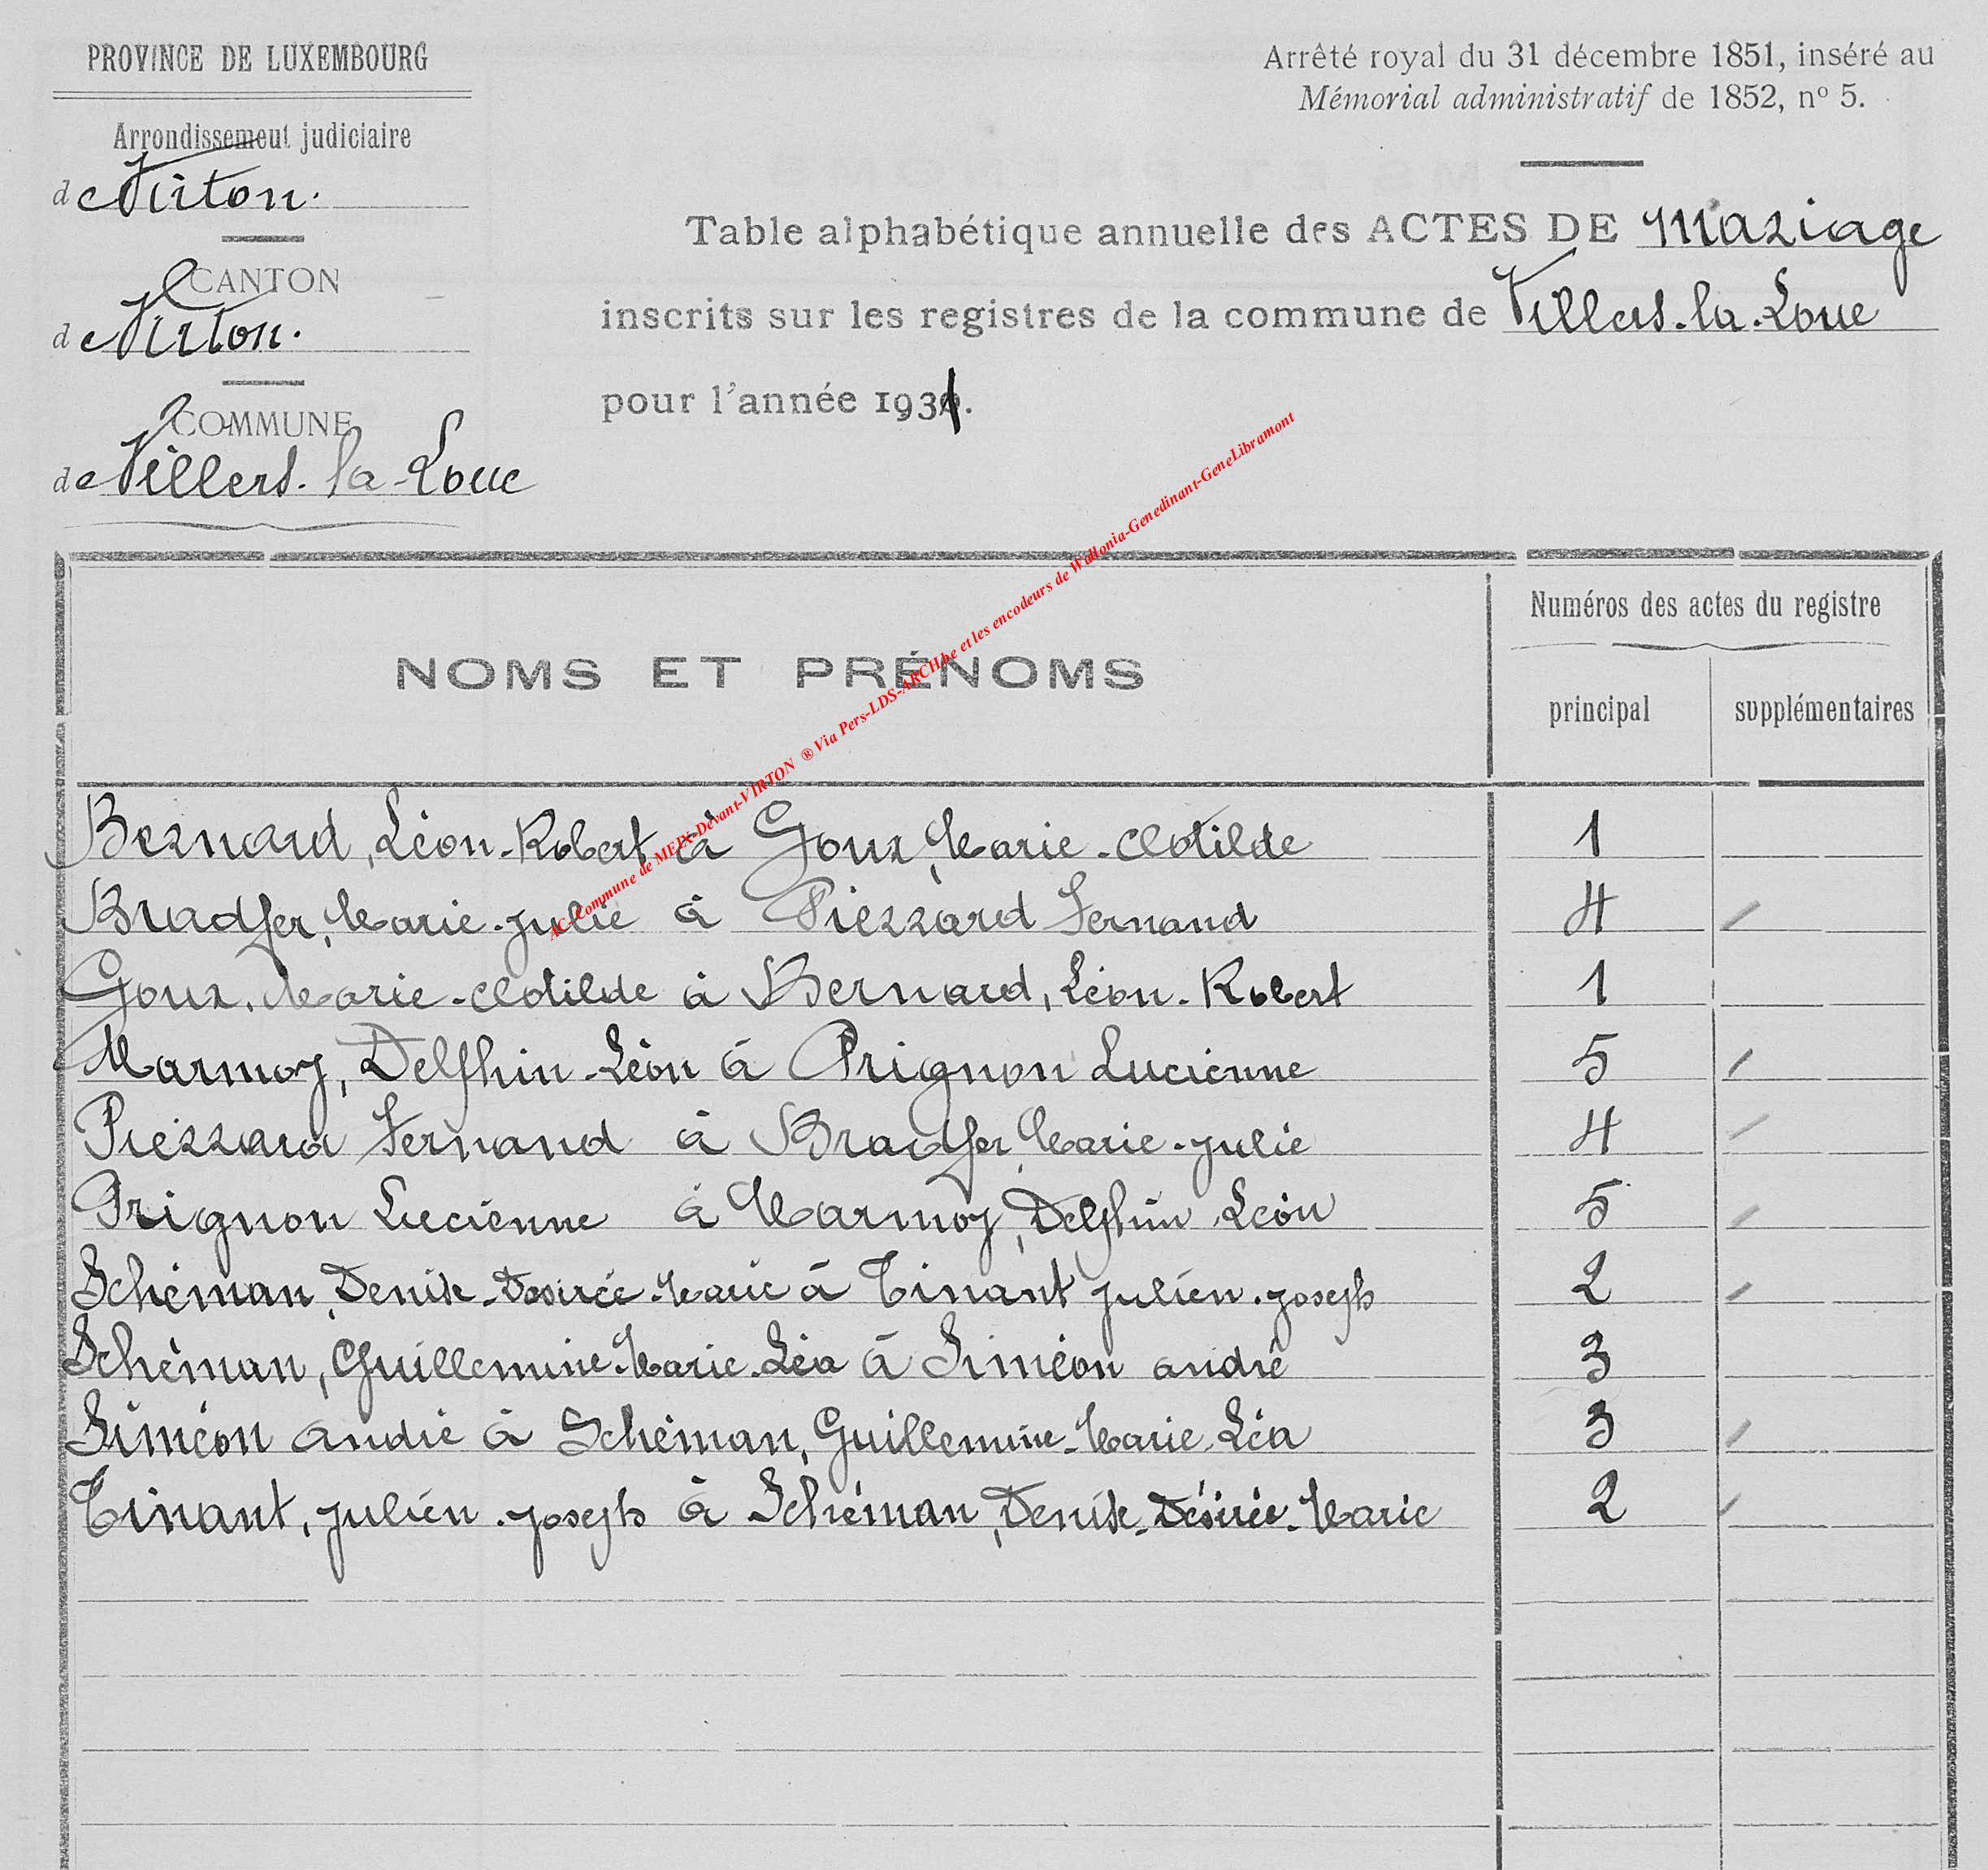 PROVINCE DE LUXEMBOURG
Arrondissement judiciaire
de Virton.
CANTON
de Virton.
COMMUNE
de Villers-la-Loue
Arrêté royal du 31 décembre 1851, inséré au
Mémorial administratif de 1852, nº 5.
Table alphabétique annuelle des ACTES DE Mariage
inscrits sur les registres de la commune de Villers-la-Loue
pour l'année 1931.
AC-Commune de MEIX-Devant-VIRTON ® Via Pers-LDS-ARCH.be et les encodeurs de Wallonia-Genedinant-GeneLibramont
NOMS ET PRÉNOMS
Numéros des actes du registre
principal supplémentaires
Bernard, Léon-Robert à Goux, Marie-Clotilde 1
Bradfer, Marie-Julie à Piezzard Fernand 4
Goux, Marie-Clotilde à Bernard, Léon-Robert 1
Marmoy, Delphin-Léon à Prignon Lucienne 5
Piezzard Fernand à Bradfer, Marie-Julie 4
Prignon Lucienne à Marmoy, Delphin Léon 5
Schéman, Denise-Désirée-Marie à Tinant Julien-Joseph 2
Schéman, Guillemine-Marie-Léa à Siméon André 3
Siméon André à Schéman, Guillemine-Marie-Léa 3
Tinant, Julien-Joseph à Schéman, Denise-Désirée-Marie 2